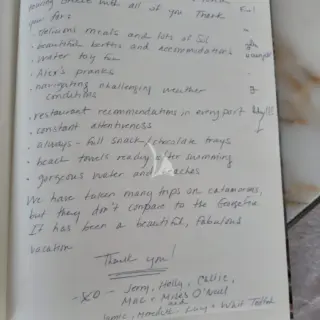 with all of you Thank
your for:
· delicious meals and lots of
· beautiful berths and accommodations
· water toy fun
· Alex's pranks
· navigating challenging weather
conditions
· restaurant recommendations in every port
· constant attentiveness
· always-full snack/chocolate trays
· beach towels ready after swimming
· gorgeous water and beaches
We have taken many trips on catamarans,
but they don't compare to the
It has been a beautiful, fabulous
vacation
Thank you!
-XO- Jerry, Holly, Callie,
Mac + Miles O'Neal
and
Jamie, Meredith,